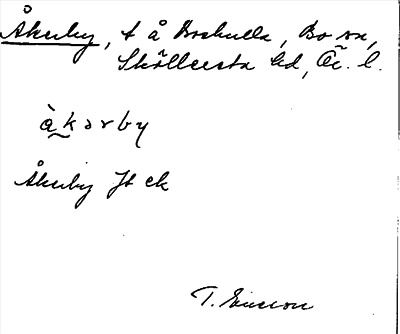 Åkerby, t å Boskulla, Bo sn,
Sköllersta hd, Ör. l.
àkərby
Åkerby Jt ek
T. Ericsson